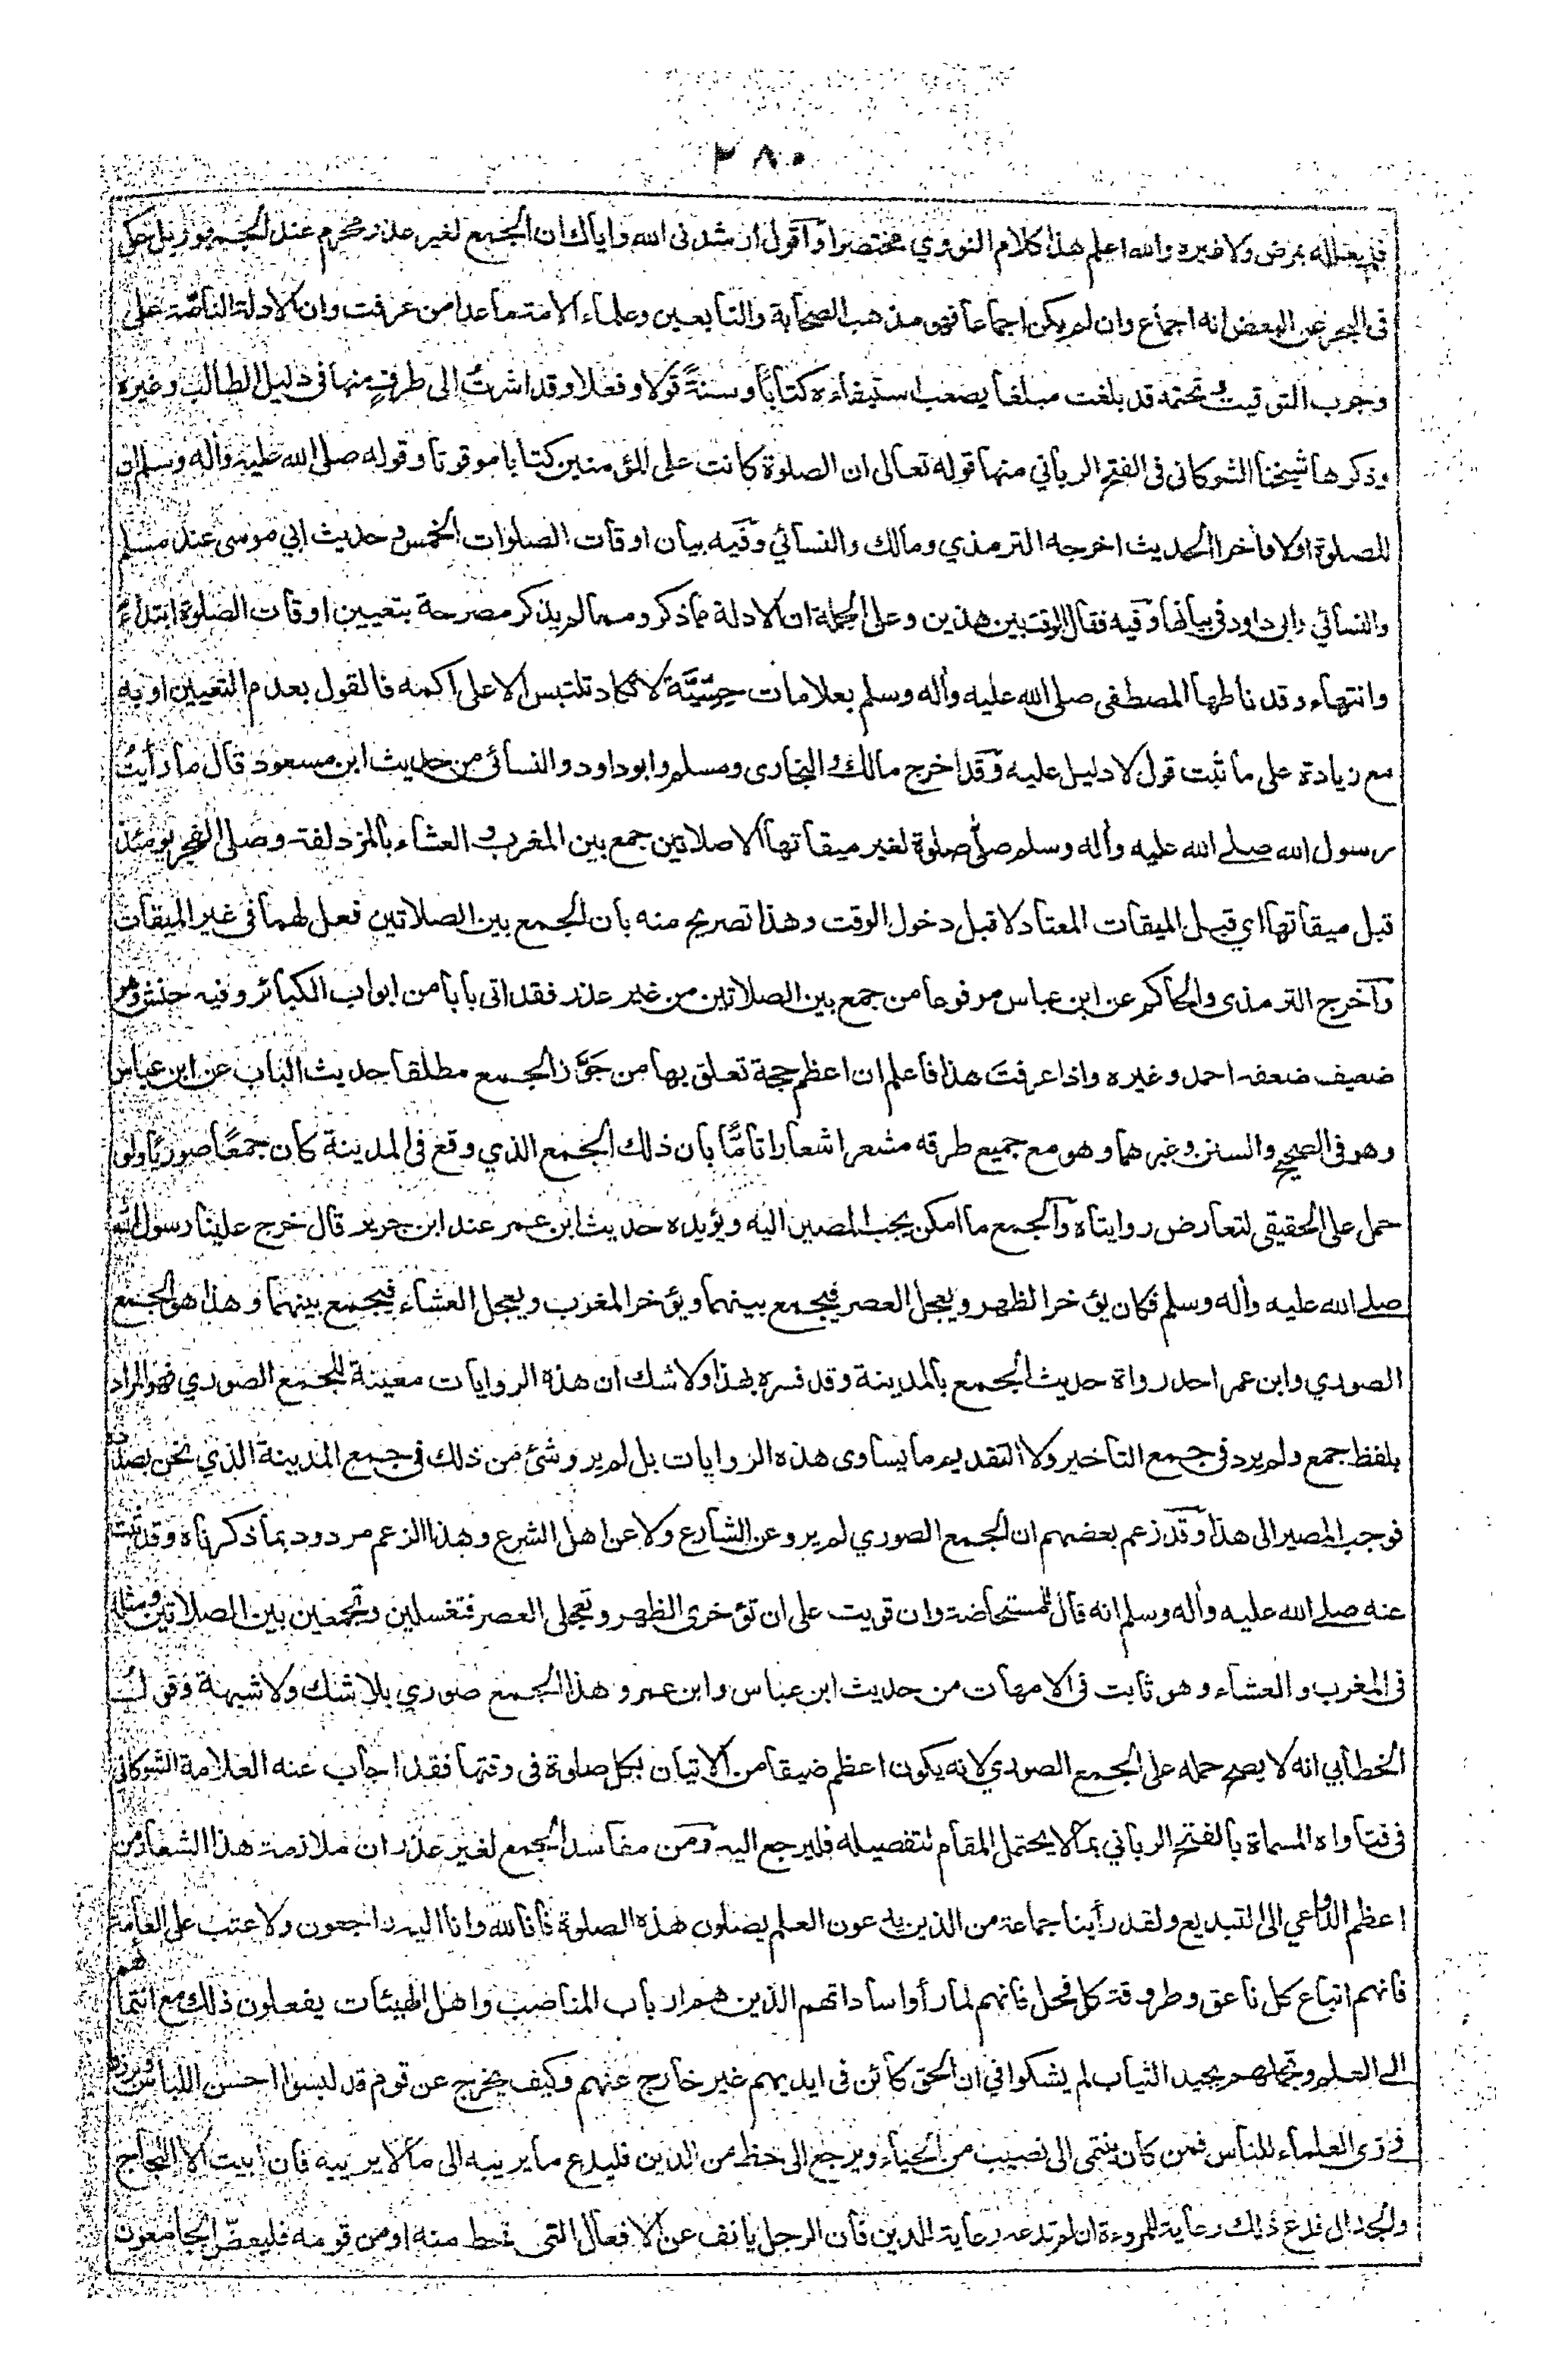 ٢٨٠
فلم يعلله بمرض ولا غيره والله اعلم هذا كلام النووي مختصرا وأقول أرشدنى الله واياك ان الجمع لغير عذر محرم عند الجمهور بل حكى
فى البحر عن البعض انه اجماع وان لم يكن اجماعا فهو مذهب الصحابة والتابعين وعلماء الامة ما عدا من عرفت وان الادلة الناصة على
وجوب التوقيت وتحتمه قد بلغت مبلغا يصعب استيفاءه كتابًا وسنةً قولا وفعلا وقد اشرتُ الى طرفٍ منها فى دليل الطالب وغيره
وذكرها شيخنا الشوكانى فى الفتح الرباني منها قوله تعالى ان الصلوة كانت على المؤمنين كتابا موقوتا وقوله صلى الله عليه وأله وسلم ان
للصلوة اولا وأخرا الحديث اخرجه الترمذي ومالك والنسائي وفيه بيان اوقات الصلوات الخمس وحديث ابي موسى عند مسلم
والنسائي وابى داود فى بيانها وفيه فقال الوقت بين هذين وعلى الجملة ان الادلة مما ذكر ومما لم يذكر مصرحة بتعيين اوقات الصلوة ابتداءً
وانتهاء وقد ناطها المصطفى صلى الله عليه وأله وسلم بعلامات حِسِّيَّة لا تكاد تلتبس الا على اكمه فالقول بعدم التعيين او به
مع زيادة على ما ثبت قول لا دليل عليه وقد اخرج مالك والبخارى ومسلم وابو داود والنسائى من حديث ابن مسعود قال ما رأيتُ
رسول الله صلى الله عليه وأله وسلم صلّى صلوة لغير ميقاتها الا صلاتين جمع بين المغرب والعشاء بالمزدلفة وصلى الفجر يومئذ
قبل ميقاتها اي قبل الميقات المعتاد لا قبل دخول الوقت وهذا تصريح منه بان الجمع بين الصلاتين فعل لهما فى غير الميقات
وأخرج الترمذى والحاكم عن ابن عباس مرفوعا من جمع بين الصلاتين من غير عذر فقد اتى بابا من ابواب الكبائر وفيه حنش وهو
ضعيف ضعفه احمد وغيره واذا عرفتَ هذا فاعلم ان اعظم حجة تعلق بها من جَوَّز الجمع مطلقا حديث الباب عن ابن عباس
وهو فى الصحيح والسنن وغيرهما وهو مع جميع طرقه مشعر اشعارا تامًّا بان ذلك الجمع الذي وقع فى المدينة كان جمعًا صوريًا ولو
حمل على الحقيقى لتعارض روايتاه والجمع ما امكن يجب المصير اليه ويؤيده حديث ابن عمر عند ابن جرير قال خرج علينا رسول الله
صلى الله عليه وأله وسلم فكان يؤخر الظهر ويعجل العصر فيجمع بينهما ويؤخر المغرب ويعجل العشاء فيجمع بينهما وهذا هو الجمع
الصوري وابن عمر احد رواة حديث الجمع بالمدينة وقد فسره بهذا ولا شك ان هذه الروايات معينة للجمع الصوري فهو المراد
بلفظ جمع ولم يرد فى جمع التأخير ولا التقديم ما يساوى هذه الروايات بل لم يرو شئ من ذلك فى جمع المدينة الذي نحن بصدده
فوجب المصير الى هذا وقد زعم بعضهم ان الجمع الصوري لم يرو عن الشارع ولا عن اهل الشرع وهذا الزعم مردود بما ذكرناه وقد ثبت
عنه صلى الله عليه وأله وسلم انه قال للمستحاضة وان قويت على ان تؤخرى الظهر وتعجلى العصر فتغسلين وتجمعين بين الصلاتين ومثله
فى المغرب والعشاء وهو ثابت فى الامهات من حديث ابن عباس وابن عمر وهذا الجمع صوري بلا شك ولا شبهة وقول
الخطابي انه لا يصح حمله على الجمع الصوري لانه يكون اعظم ضيقا من الاتيان بكل صلوة فى وقتها فقد اجاب عنه العلامة الشوكانى
فى فتاواه المسماة بالفتح الرباني بما لا يحتمل المقام لتفصيله فليرجع اليه ومن مفاسد الجمع لغير عذر ان ملازمة هذا الشعار من
اعظم الدواعي الى التبديع ولقد رأينا جماعة من الذين يدعون العلم يصلون هذه الصلوة فانا لله وانا اليه راجعون ولا عتب على العامة
فانهم اتباع كل ناعق وطروقة كل فحل فانهم لما رأوا ساداتهم الذين هم ارباب المناصب واهل الهيئات يفعلون ذلك مع انتمائهم
الى العلم وتجملهم بجيد الثياب لم يشكوا في ان الحق كائن فى ايديهم غير خارج عنهم وكيف يخرج عن قوم قد لبسوا احسن اللباس وبرزوا
فى زى العلماء للناس فمن كان ينتمى الى نصيب من الحياء ويرجع الى حظ من الدين فليدع ما يريبه الى ما لا يريبه فان ابيت الا اللجاج
والجدال فدع ذلك رعاية للمروءة ان لم تدعه رعاية للدين فان الرجل يانف عن الافعال التى تحط منه او من قومه فليعضّ الجامعون